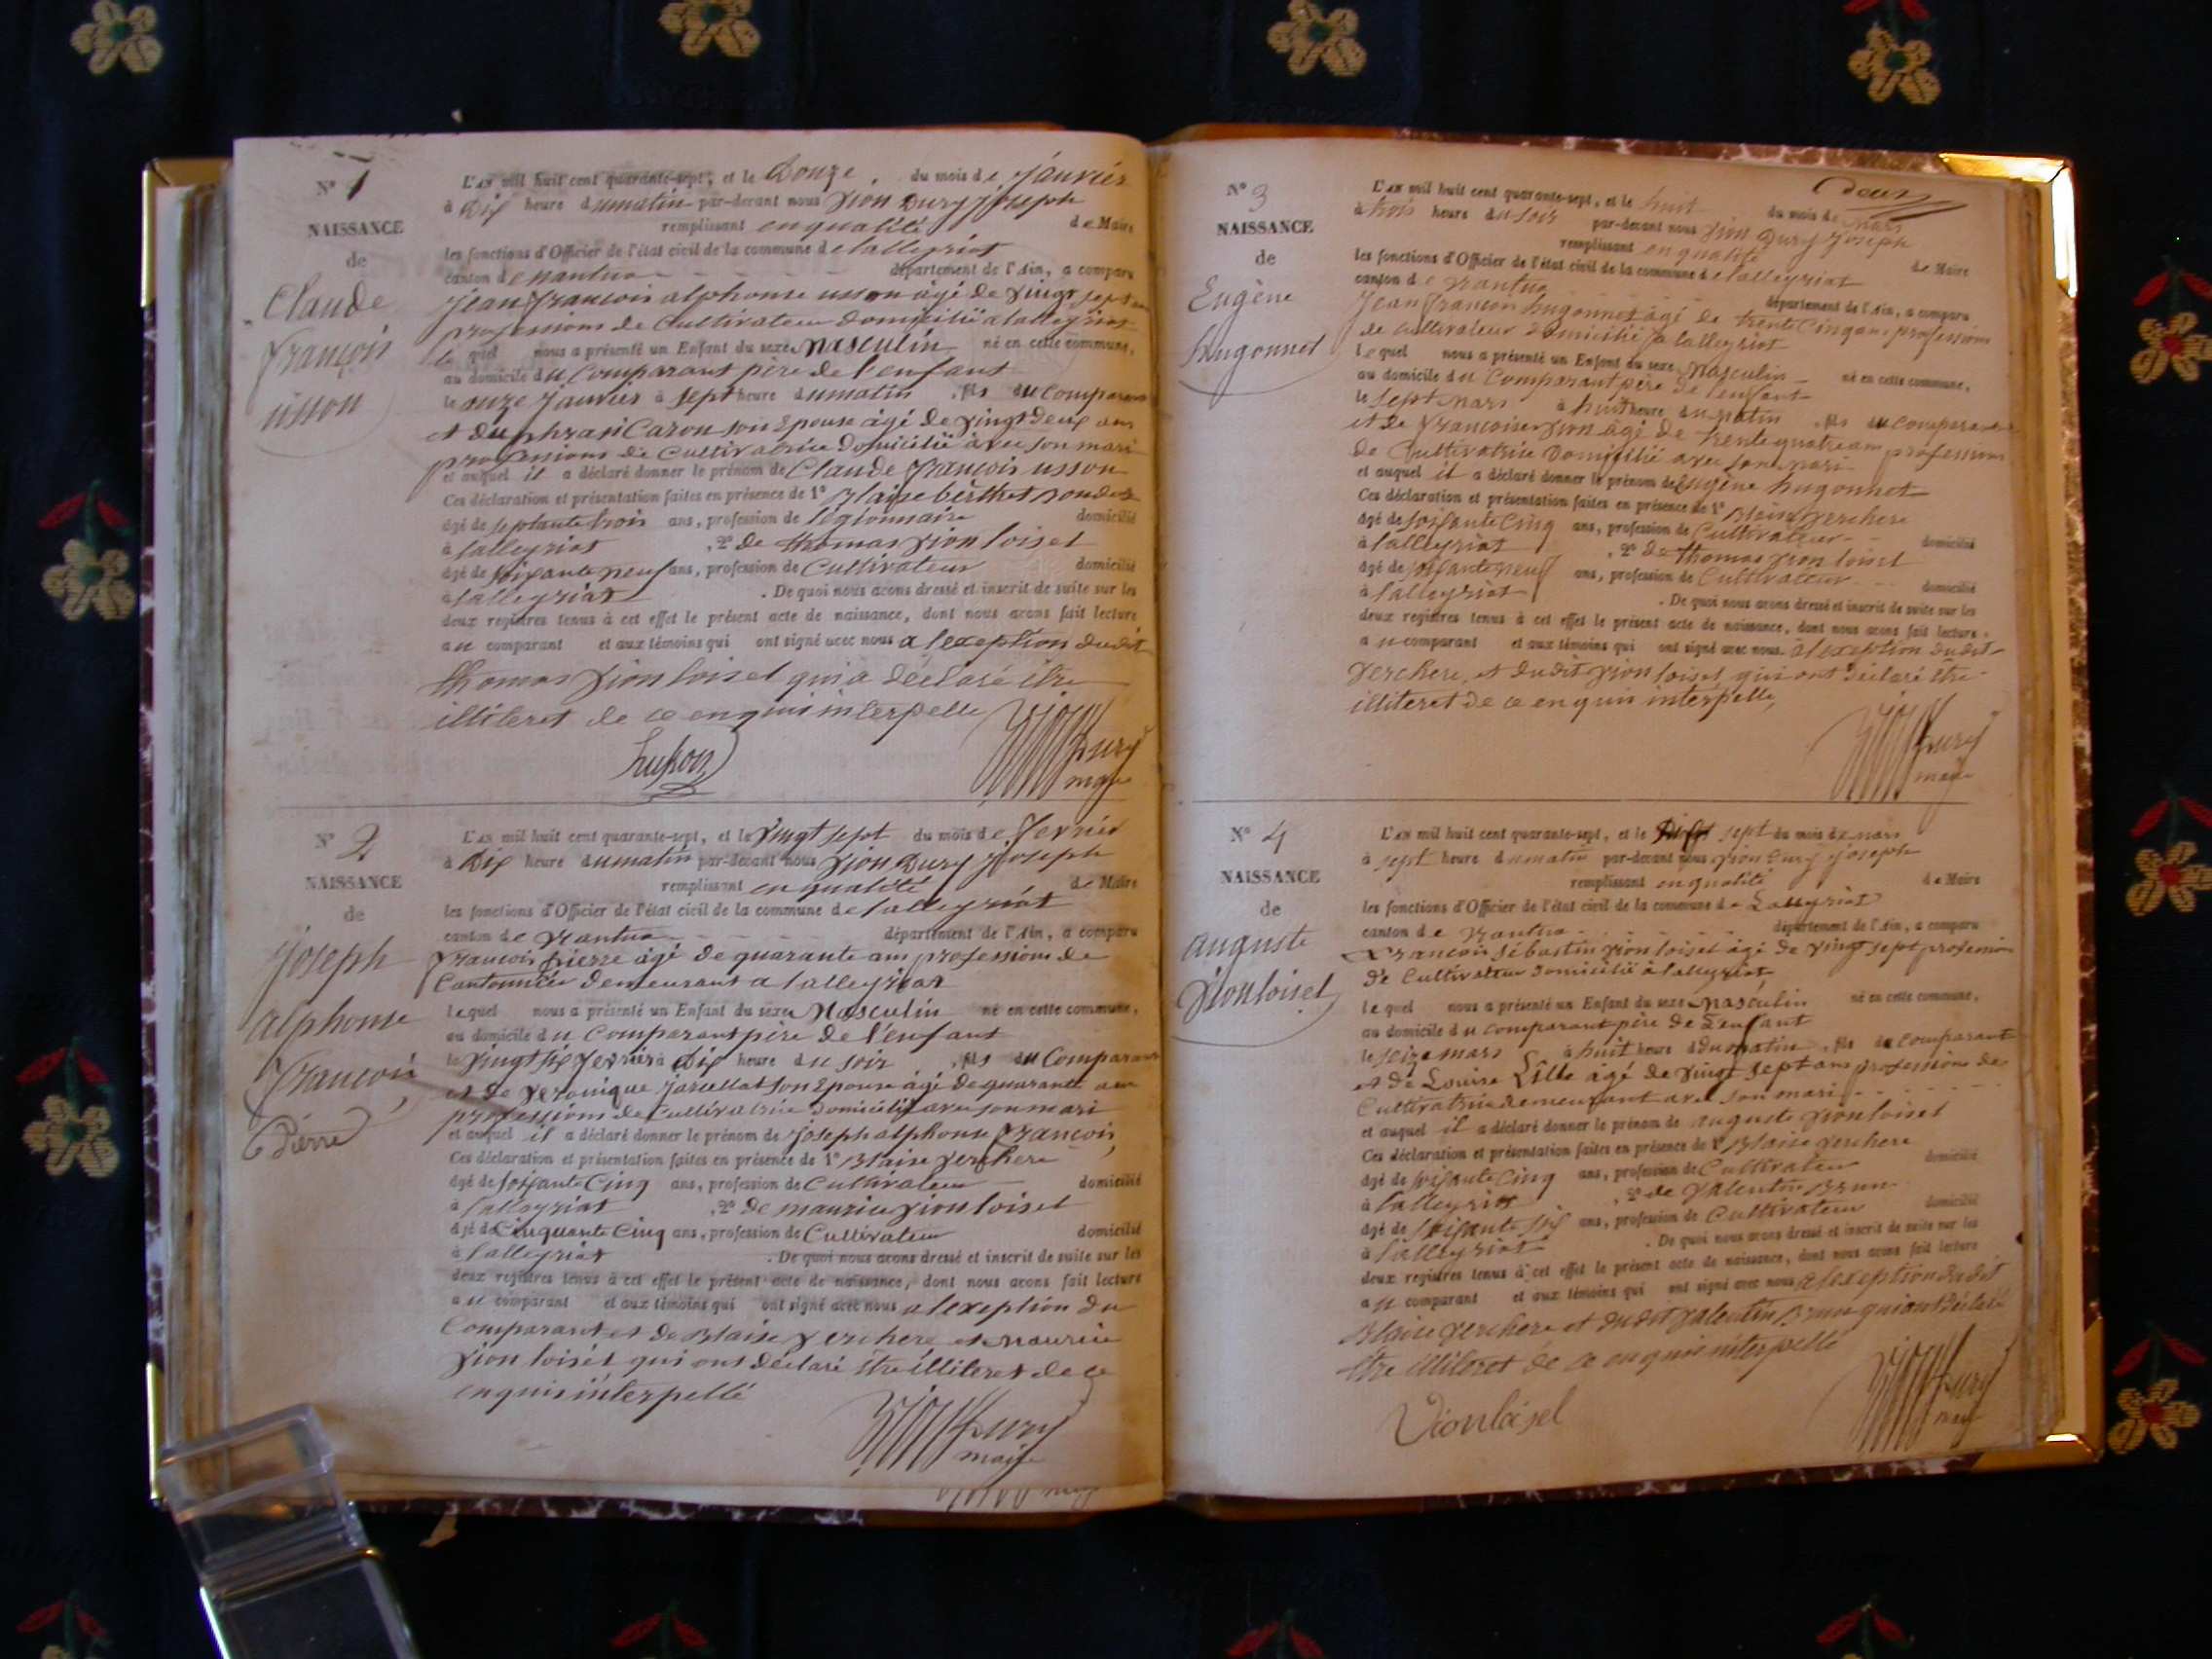 N° 1
NAISSANCE
de
Claude
françois
usson
L'AN mil huit cent quarante-sept, et le Douze du mois de janvier
à Dix heure du matin par-devant nous Vion Dury Joseph
remplissant en qualité de Maire
les fonctions d'Officier de l'état civil de la commune de lalleyriat
canton de nantua département de l'Ain, a comparu
Jean françois alphonse usson âgé de vingt sept ans
professions de Cultivateur domicilié a lalleyriat
le quel nous a présenté un Enfant du sexe Masculin né en cette commune,
au domicile du Comparant père de l'enfant
le onze Janvier à sept heure du matin , fils du Comparant
et Caron son Epouse âgé de vingt deux ans
professions de Cultivatrice Domicilié avec son mari
et auquel il a déclaré donner le prénom de Claude françois usson
Ces déclaration et présentation faites en présence de 1° Blaise berthet
âgé de septante trois ans, profession de légionnaire domicilié
à lalleyriat , 2° de thomas Vion loisel
âgé de soixante neuf ans, profession de Cultivateur domicilié
à lalleyriat . De quoi nous avons dressé et inscrit de suite sur les
deux registres tenus à cet effet le présent acte de naissance, dont nous avons fait lecture
au comparant et aux témoins qui ont signé avec nous a lexeption dudit
thomas Vion loisel qui a déclaré être
illiteret de ce enquis interpelle
husson
Vion Dury
maire
N° 2
NAISSANCE
de
Joseph
alphonse
françois
Pierre
L'AN mil huit cent quarante-sept, et le Vingt sept du mois de fevrier
à Dix heure du matin par-devant nous Vion Dury Joseph
remplissant en qualité de Maire
les fonctions d'Officier de l'état civil de la commune de lalleyriat
canton de Nantua département de l'Ain, a comparu
francois pierre âgé de quarante ans professions de
Cantonnier demeurant a lalleyriat
le quel nous a présenté un Enfant du sexe Masculin né en cette commune,
au domicile du Comparant père de l'enfant
le Vingt six fevrier à Dix heure du soir , fils du Comparant
et de Veronique Jarcellat son Epouse âgé de quarante ans
professions de Cultivatrice domicilié avec son mari
et auquel il a déclaré donner le prénom de Joseph alphonse françois,
Ces déclaration et présentation faites en présence de 1° Blaise Verchere
âgé de soixante Cinq ans, profession de Cultivateur domicilié
à lalleyriat , 2° de maurice Vion loisel
âgé de Cinquante Cinq ans, profession de Cultivateur domicilié
à lalleyriat . De quoi nous avons dressé et inscrit de suite sur les
deux registres tenus à cet effet le présent acte de naissance, dont nous avons fait lecture
au comparant et aux témoins qui ont signé avec nous a lexeption du
Comparant et de Blaise Verchere et Maurice
Vion loisel qui ont déclaré être illiteret de ce
enquis interpellé
Vion Dury
maire
deux
N° 3
NAISSANCE
de
Eugène
hugonnet
L'AN mil huit cent quarante-sept, et le huit du mois de Mars
à trois heure du soir par-devant nous Vion Dury Joseph
remplissant en qualité de Maire
les fonctions d'Officier de l'état civil de la commune de lalleyriat
canton de Nantua département de l'Ain, a comparu
Jean françois hugonnet âgé de trente Cinq ans professions
de cultivateur domicilié a lalleyriat
le quel nous a présenté un Enfant du sexe Masculin né en cette commune,
au domicile du Comparant père de l'enfant
le sept mars à huit heure du matin , fils du Comparant
et de Vion âgé de trente quatre ans professions
de Cultivatrice Domicilié avec son mari
et auquel il a déclaré donner le prénom de Eugène hugonnet
Ces déclaration et présentation faites en présence de 1° Blaise Verchere
âgé de soixante Cinq ans, profession de Cultivateur domicilié
à lalleyriat , 2° de thomas Vion loisel
âgé de soixante neuf ans, profession de Cultivateur domicilié
à lalleyriat . De quoi nous avons dressé et inscrit de suite sur les
deux registres tenus à cet effet le présent acte de naissance, dont nous avons fait lecture
au comparant et aux témoins qui ont signé avec nous a lexeption dudit
Verchere, et dudit Vion loisel, qui ont déclaré être
illiteret de ce enquis interpelle,
Vion Dury
maire
N° 4
NAISSANCE
de
auguste
Vionloisel
L'AN mil huit cent quarante-sept, et le sept du mois de mars
à sept heure du matin par-devant nous Vion Dury Joseph
remplissant en qualité de Maire
les fonctions d'Officier de l'état civil de la commune de Lalleyriat
canton de Nantua département de l'Ain, a comparu
francois Sébastin Vion loisel âgé de vingt sept profession
de Cultivateur domicilié à lalleyriat
le quel nous a présenté un Enfant du sexe Masculin né en cette commune,
au domicile du comparant père de Lenfant
le seize mars à huit heure du matin , fils du comparant
et de Louise Lille âgé de vingt sept ans professions de
Cultivatrice demeurant avec son mari
et auquel il a déclaré donner le prénom de auguste Vionloisel
Ces déclaration et présentation faites en présence de 1° Blaise Verchere
âgé de soixante Cinq ans, profession de Cultivateur domicilié
à lalleyriat , 2° de Valentin Brun
âgé de soixante six ans, profession de Cultivateur domicilié
à lalleyriat . De quoi nous avons dressé et inscrit de suite sur les
deux registres tenus à cet effet le présent acte de naissance, dont nous avons fait lecture
au comparant et aux témoins qui ont signé avec nous a lexeption dudit
Blaise Verchere et dudit Valentin Brun qui ont déclaré
être illiteret de ce enquis interpellé
Vionloisel
Vion Dury
maire